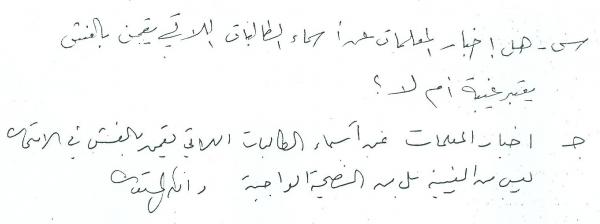 س - هل إخبار المعلمات عن أسماء الطالبات اللاتي يقمن بالغش
يعتبر غيبة أم لا ؟
ج إخبار المعلمات عن أسماء الطالبات اللاتي يقمن بالغش في الامتحان
ليس من الغيبة بل من النصيحة الواجبة والله المستعان